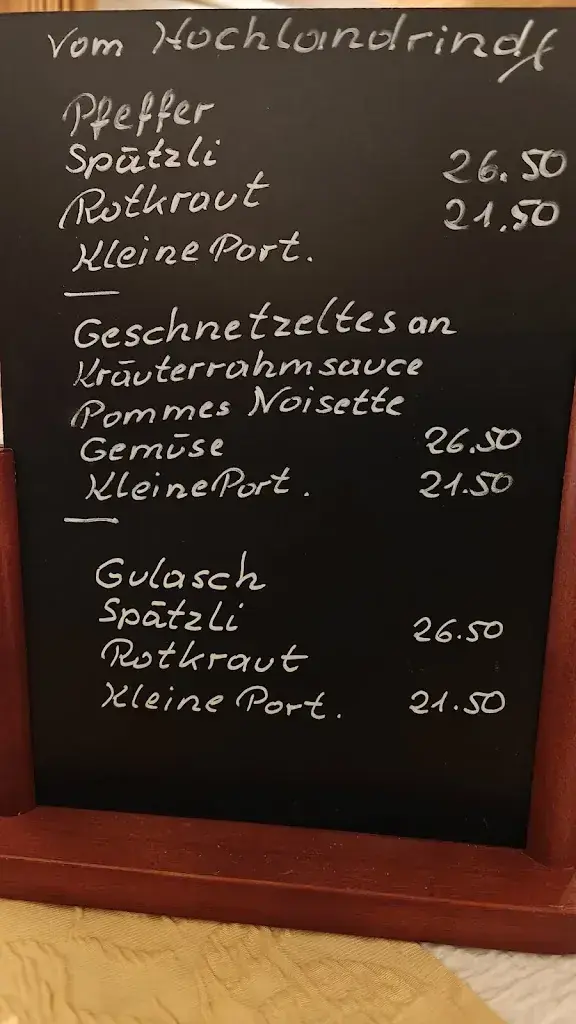 Vom Hochlandrind
Pfeffer
Spätzli 26.50
Rotkraut 21.50
Kleine Port.
Geschnetzeltes an
Kräuterrahmsauce
Pommes Noisette
Gemüse 26.50
Kleine Port. 21.50
Gulasch
Spätzli 26.50
Rotkraut
Kleine Port. 21.50